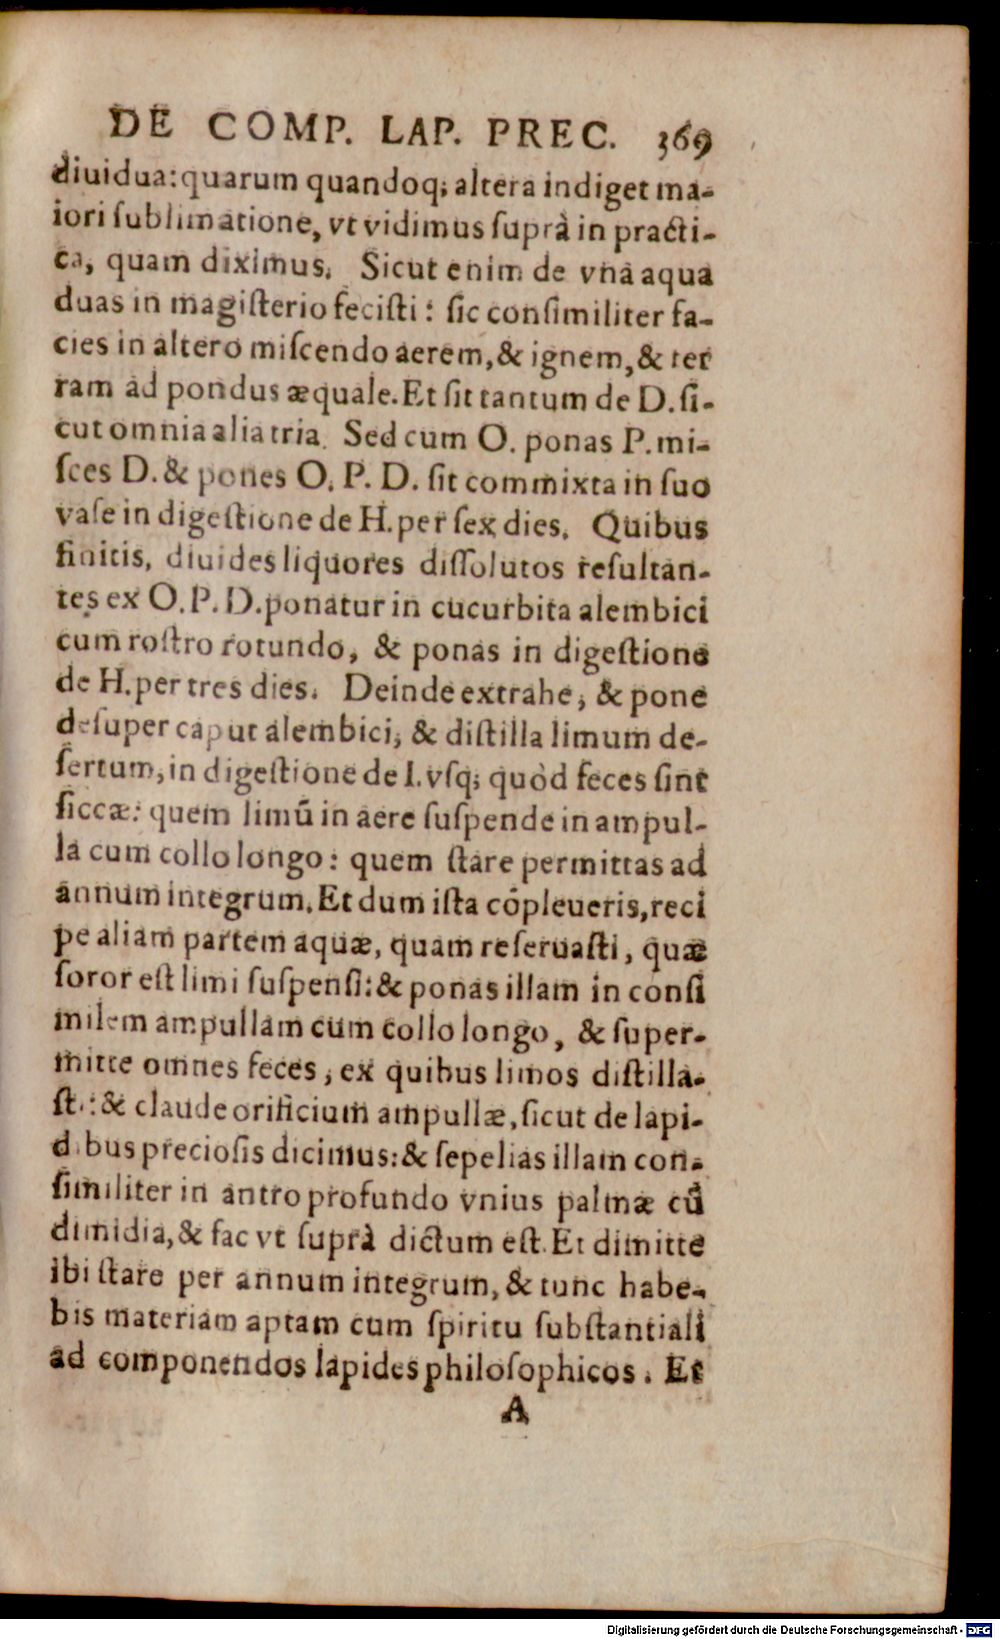 DE COMP. LAP. PREC. 369
diuidua: quarum quandoq; altera indiget ma-
iori ſublimatione, vt vidimus ſuprà in practi-
ca, quam diximus. Sicut enim de vna aqua
duas in magiſterio feciſti: ſic conſimiliter fa-
cies in altero miſcendo aerem, & ignem, & ter
ram ad pondus æquale. Et ſit tantum de D. ſi-
cut omnia alia tria. Sed cum O. ponas P. mi-
ſces D. & pones O. P. D. ſit commixta in ſuo
vaſe in digeſtione de H. per ſex dies. Quibus
finitis, diuides liquores diſſolutos reſultan-
tes ex O. P. D. ponatur in cucurbita alembici
cum roſtro rotundo, & ponas in digeſtione
de H. per tres dies. Deinde extrahe, & pone
deſuper caput alembici, & diſtilla limum de-
ſertum, in digeſtione de I. vſq; quòd feces ſint
ſiccæ: quem limū in aere ſuſpende in ampul-
la cum collo longo: quem ſtare permittas ad
annum integrum. Et dum iſta cōpleueris, reci
pe aliam partem aquæ, quam reſeruaſti, quæ
ſoror eſt limi ſuſpenſi: & ponas illam in conſi
milem ampullam cum collo longo, & ſuper-
mitte omnes feces, ex quibus limos diſtilla-
ſti: & claude orificium ampullæ, ſicut de lapi-
dibus precioſis dicimus: & ſepelias illam con-
ſimiliter in antro profundo vnius palmæ cū
dimidia, & fac vt ſuprà dictum eſt. Et dimitte
ibi ſtare per annum integrum, & tunc habe-
bis materiam aptam cum ſpiritu ſubſtantiali
ad componendos lapides philoſophicos. Et
A
Digitalisierung gefördert durch die Deutsche Forschungsgemeinschaft - DFG